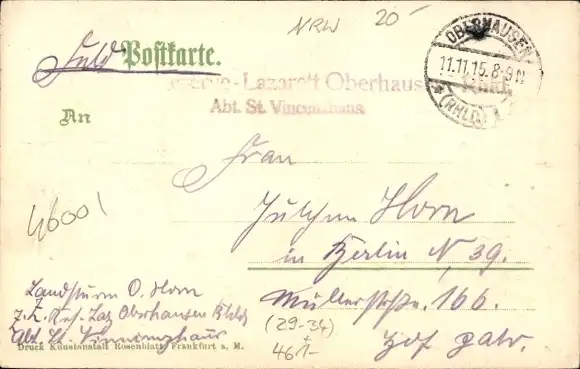 NRW 20-
Feld Postkarte.
OBERHAUSEN
11.11.15.8-9N
(RHLD.)
Reserve-Lazarett Oberhausen Rhld.
Abt. St. Vincenzhaus
An
Frau
Julchen Horn
in Berlin N, 39.
Müllerstraße. 166.
Hof part.
46001
Landsturm O. Horn
z. Z. Res. Laz Oberhausen Rhld
Abt. St. Vincenzhaus
(29-34)
46 1-
Druck Kunstanstalt Rosenblatt, Frankfurt a. M.